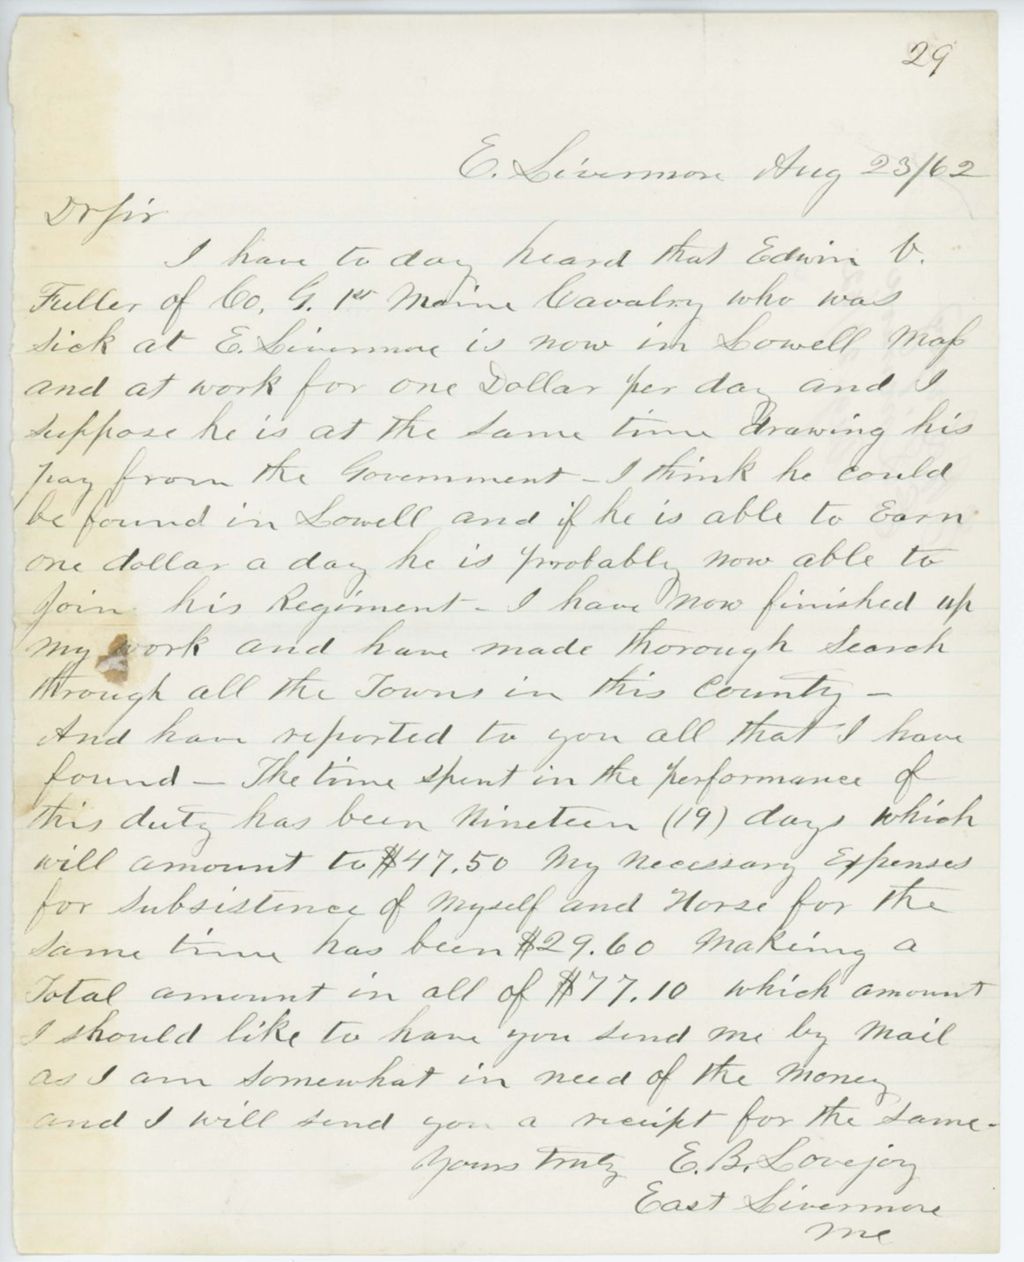 29
E. Livermore Aug 23/62
Dr Sir
I have to day heard that Edwin V.
Fuller of Co, G. 1st Maine Cavalry who was
sick at E. Livermore is now in Lowell Mass
and at work for one Dollar per day and I
suppose he is at the same time drawing his
pay from the Government - I think he could
be found in Lowell and if he is able to Earn
one dollar a day he is probably now able to
join his Regiment - I have now finished up
my work and have made thorough search
through all the Towns in this County -
And have reported to you all that I have
found - The time spent in the performance of
this duty has been Nineteen (19) days which
will amount to $47.50 My necessary Expenses
for subsistence of Myself and Horse for the
same time has been $29.60 Making a
Total amount in all of $77.10 which amount
I should like to have you send me by Mail
as I am somewhat in need of the money
and I will send you a reciept for the same -
Yours truly E. B. Lovejoy
East Livermore
Me